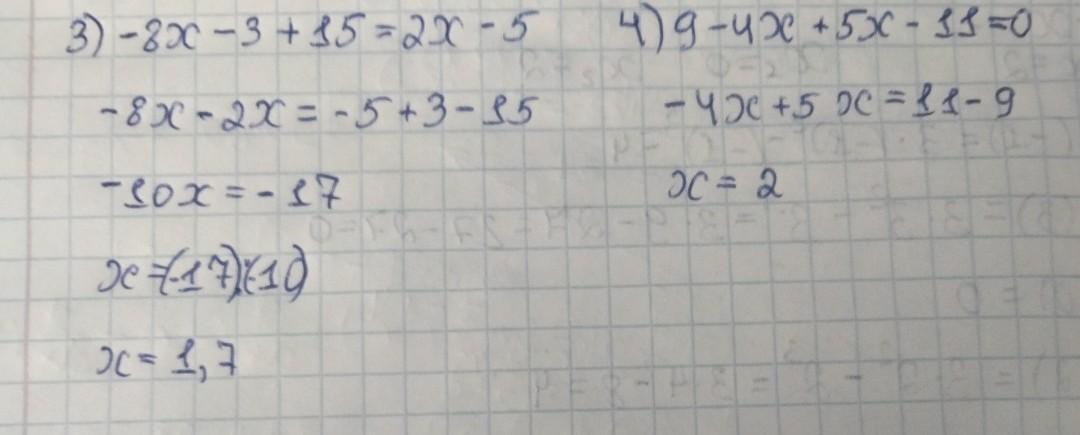 3) -8x - 3 + 15 = 2x - 5
-8x - 2x = -5 + 3 - 15
-10x = -17
x = (-17):(-10)
x = 1,7
4) 9 - 4x + 5x - 11 = 0
-4x + 5x = 11 - 9
x = 2